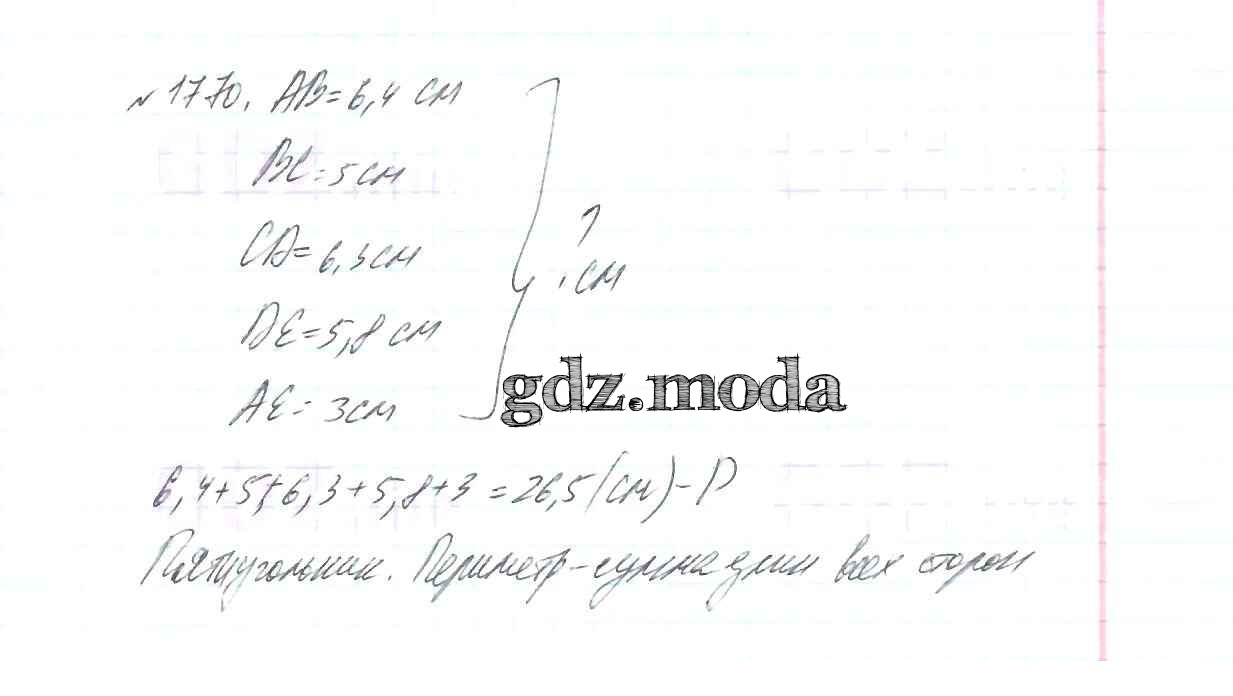 № 1770. AB = 6,4 см
BC = 5 см
CD = 6,3 см
? см
DE = 5,8 см
gdz.moda
AE = 3 см
6,4+5+6,3+5,8+3 = 26,5 (см) - P
Пятиугольник. Периметр - сумма длин всех сторон